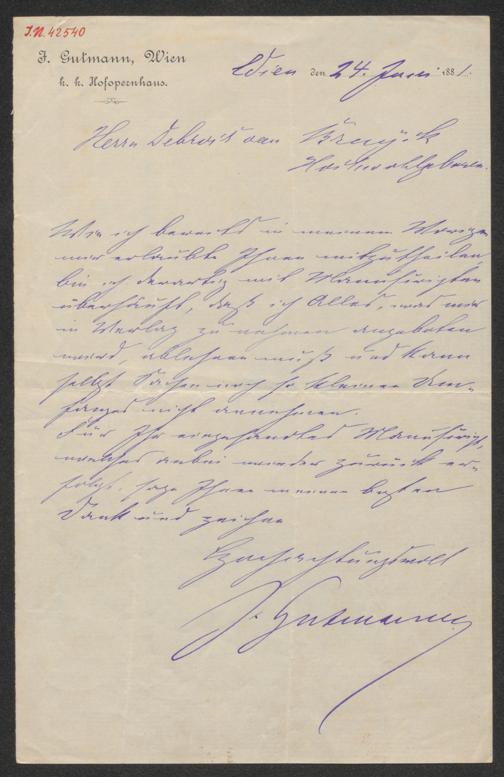 I.N. 42540
J. Gutmann, Wien
k. k. Hofopernhaus.
Wien den 24. Juni 1881.
Herrn Debrois van Bruyck
Hochwohlgeboren.
Wie ich bereits in meinem Vorigen
mir erlaubte Ihnen mitzutheilen,
bin ich derartig mit Manuscripten
überhäuft, daß ich Alles, was mir
in Verlag zu nehmen angeboten
wird, ablehnen muß und kann
selbst Sachen noch so kleinen Um-
fanges nicht annehmen.
Für Ihr eingesandtes Manuscript,
welches anbei wieder zurück er-
folgt, sage Ihnen meinen besten
Dank und zeichne
Hochachtungsvoll
J. Gutmann